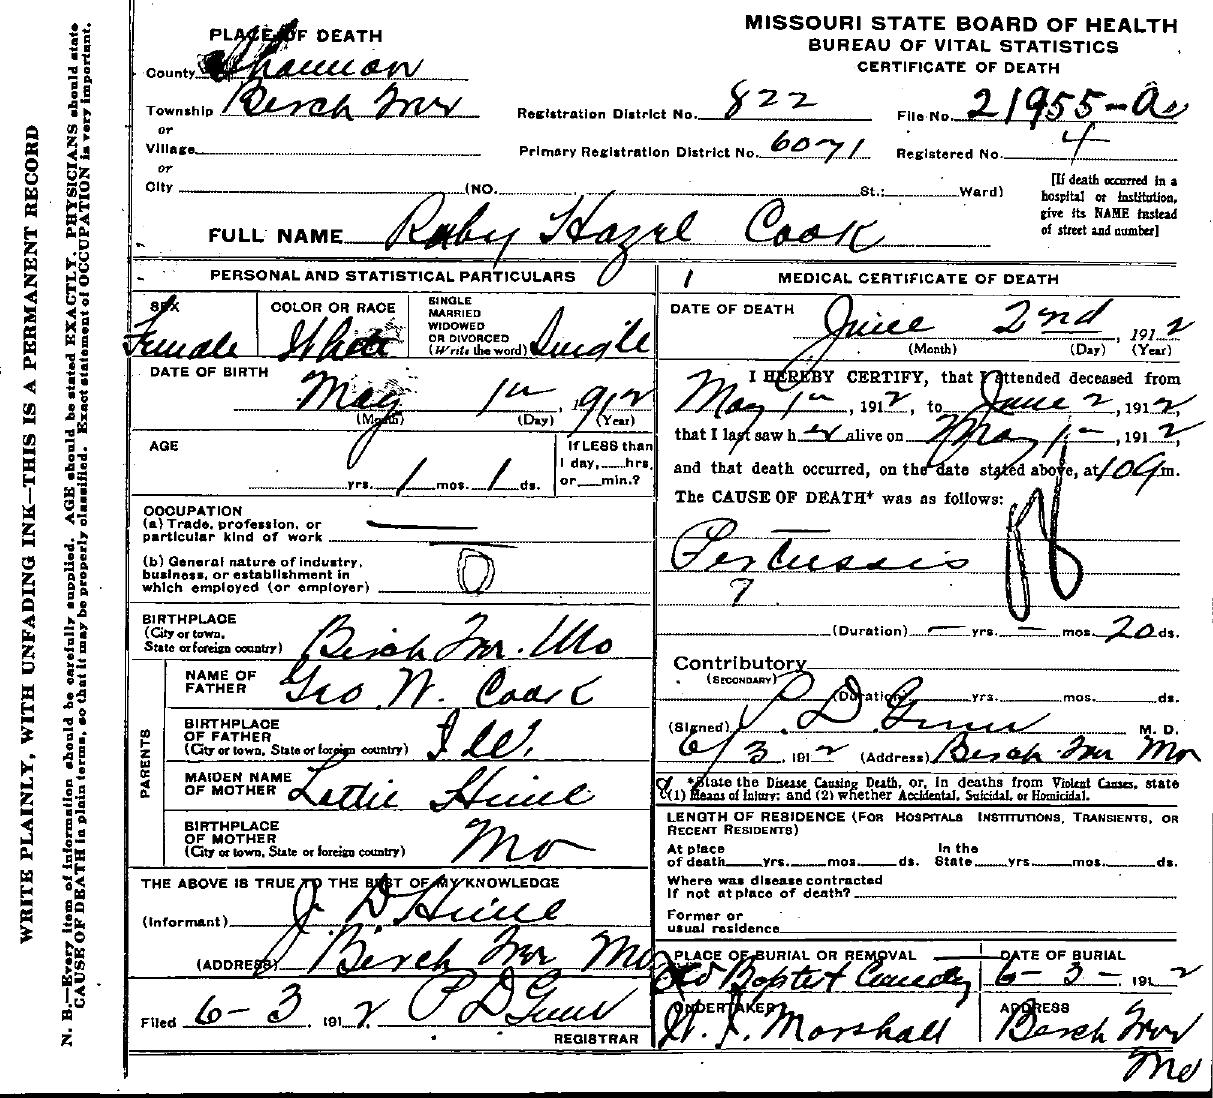 WRITE PLAINLY, WITH UNFADING INK—THIS IS A PERMANENT RECORD
N. B.—Every item of information should be carefully supplied. AGE should be stated EXACTLY. PHYSICIANS should state
CAUSE OF DEATH in plain terms, so that it may be properly classified. Exact statement of OCCUPATION is very important.
MISSOURI STATE BOARD OF HEALTH
BUREAU OF VITAL STATISTICS
CERTIFICATE OF DEATH
PLACE OF DEATH
County Shannon
Township Birch Tree
or
Village
or
City (NO. St.; Ward)
Registration District No. 822
File No. 21955-A
Primary Registration District No. 6071
Registered No. 4
[If death occurred in a
hospital or institution,
give its NAME instead
of street and number]
FULL NAME Ruby Hazel Cook
PERSONAL AND STATISTICAL PARTICULARS
SEX
Female
COLOR OR RACE
White
SINGLE
MARRIED
WIDOWED
OR DIVORCED
(Write the word) Single
DATE OF BIRTH
May 1st, 1912
(Month) (Day) (Year)
AGE
yrs. 1 mos. 1 ds.
If LESS than
1 day, hrs.
or min.?
OCCUPATION
(a) Trade, profession, or
particular kind of work
(b) General nature of industry,
business, or establishment in
which employed (or employer) O
BIRTHPLACE
(City or town,
State or foreign country) Birch Tree. Mo
PARENTS
NAME OF
FATHER Geo W. Cook
BIRTHPLACE
OF FATHER
(City or town, State or foreign country) Ill.
MAIDEN NAME
OF MOTHER Lettie
BIRTHPLACE
OF MOTHER
(City or town, State or foreign country) Mo
THE ABOVE IS TRUE TO THE BEST OF MY KNOWLEDGE
(Informant) J. D.
(ADDRESS) Birch Tree Mo
Filed 6-3 1912 P D Gunn
REGISTRAR
MEDICAL CERTIFICATE OF DEATH
DATE OF DEATH June 2nd, 1912
(Month) (Day) (Year)
I HEREBY CERTIFY, that I attended deceased from
May 1st, 1912, to June 2, 1912,
that I last saw her alive on May 1st, 1912,
and that death occurred, on the date stated above, at m.
The CAUSE OF DEATH* was as follows:
Pertussis
(Duration) — yrs. — mos. 20 ds.
Contributory
(SECONDARY)
(Duration) yrs. mos. ds.
(Signed) P. D Gunn M. D.
6/3, 1912 (Address) Birch Tree Mo
*State the Disease Causing Death, or, in deaths from Violent Causes, state
(1) Means of Injury; and (2) whether Accidental, Suicidal, or Homicidal.
LENGTH OF RESIDENCE (FOR HOSPITALS INSTITUTIONS, TRANSIENTS, OR
RECENT RESIDENTS)
At place
of death yrs. mos. ds.
In the
State yrs. mos. ds.
Where was disease contracted
If not at place of death?
Former or
usual residence
PLACE OF BURIAL OR REMOVAL
Baptist
DATE OF BURIAL
6-3-, 1912
UNDERTAKER
Marshall
ADDRESS
Birch Tree
Mo